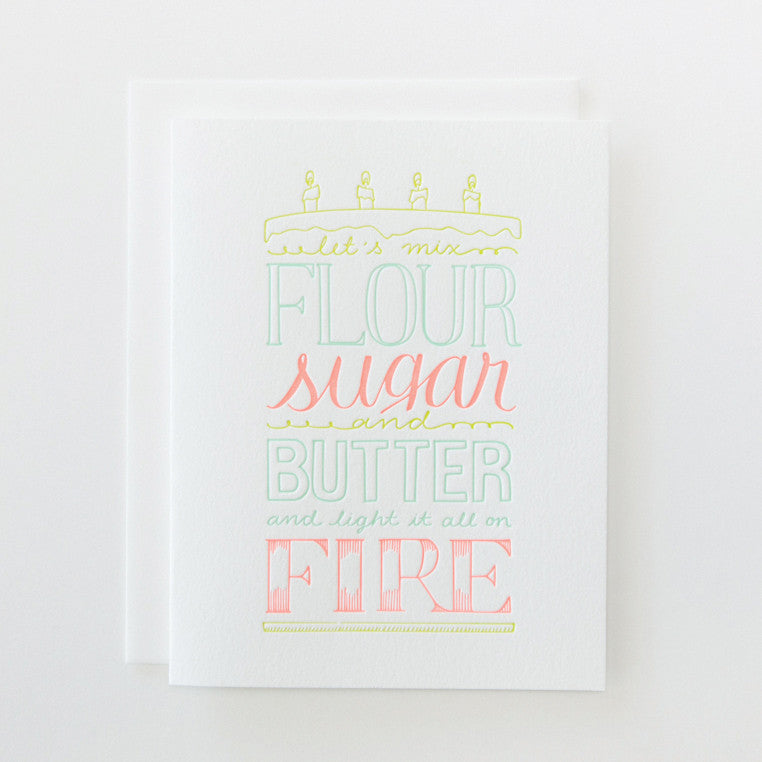 let's mix
FLOUR
sugar
and
BUTTER
and light it all on
FIRE